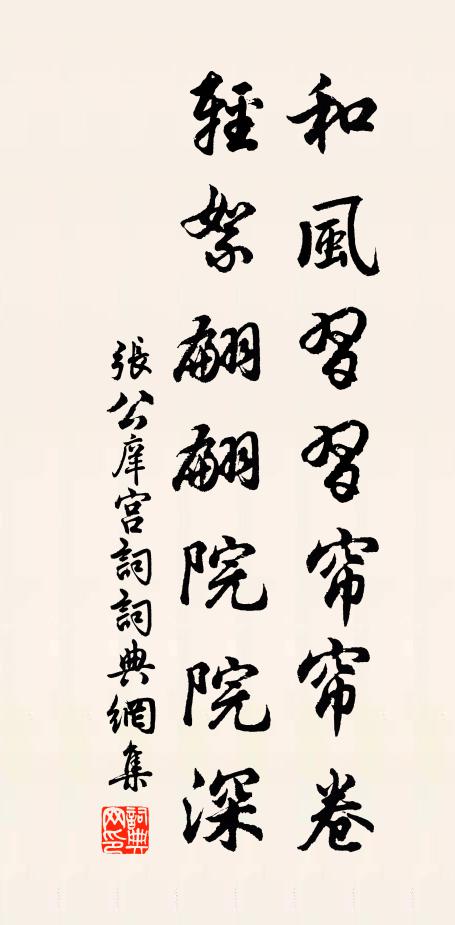 和風習習帘帘卷
輕絮翩翩院院深
張公庠宮詞詞典網集
詞典網印